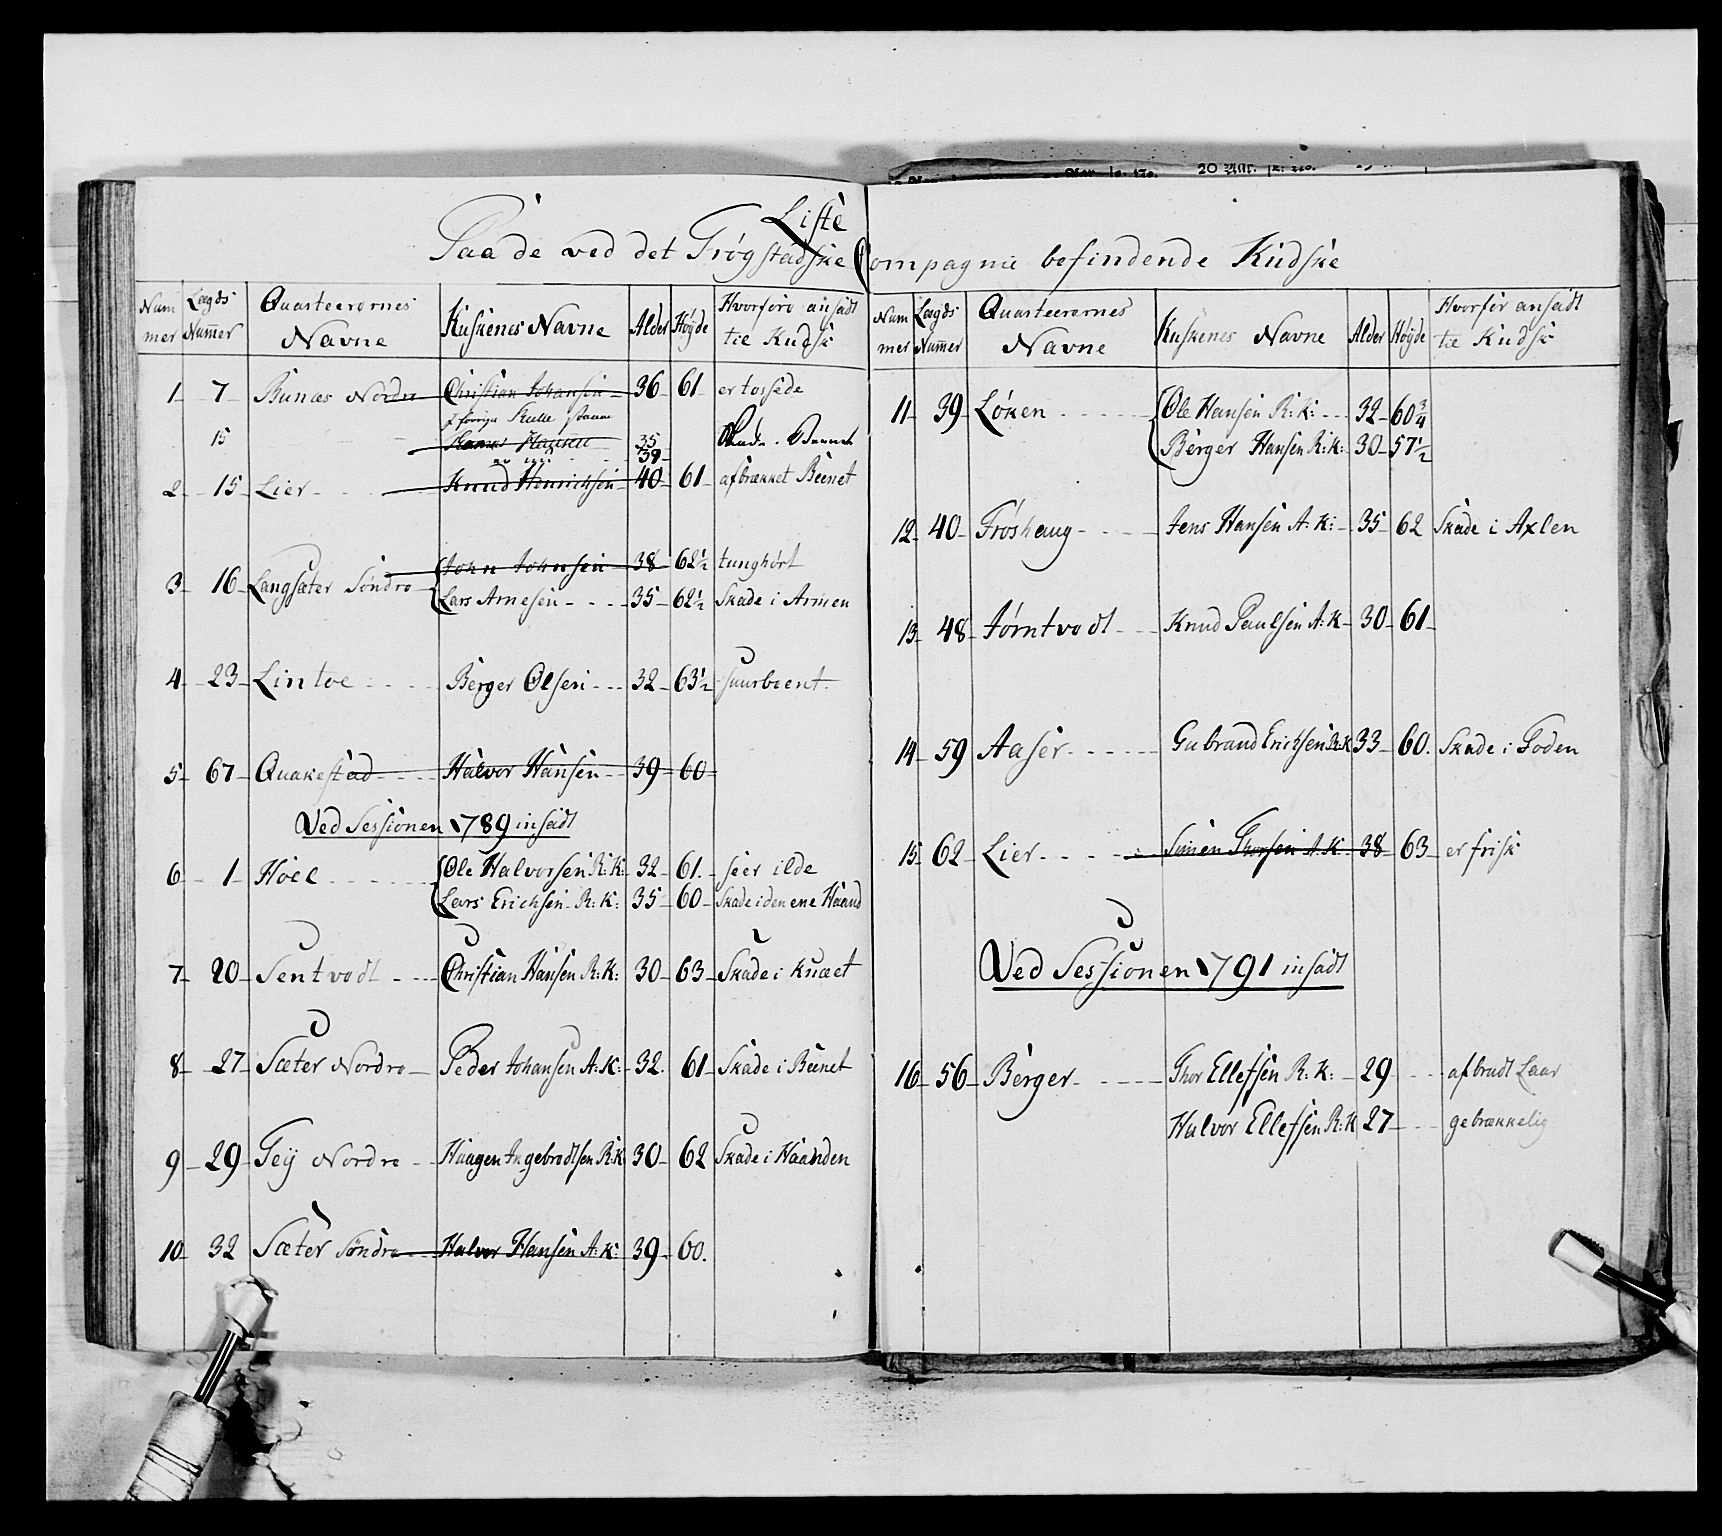 Liste
Paa de ved det Trøgstadske Compagnie befindende Kudske
Num mer | Lægds Num̅er | Quarteerernes Navne | Kuskenes Navne | Alder | Høyde | Hvorfore ansadt til Kudsk
1 7 Bunæs Nordre Christian Johansen 36 61 er tossede
15 35 39
2 15 Lier Knud Henrichsen 40 61 afbrækket Beenet
3 16 Langsæter Søndre John Johnsen 38 62½ tunghørt
Lars Arnesen 35 62½ Skade i Armen
4 23 Lintoe Berger Olsen 32 63½ suurbeent
5 67 Quakestad Halvor Hansen 39 60
Ved Sessionen 1789 insadt
6 1 Hoel Ole Halvorsen R:K: 32 61. seer ilde
Lars Erichsen R:K: 35 60 Skade i den ene Haand
7 20 Sentvedt Christian Hansen R:K: 30 63 Skade i Knæet
8 27 Sæter Nordre Peder Johansen A:K: 32. 61 Skade i Beenet
9 29 Teij Nordre Haagen Ingebrodtsen R:K 30 62 Skade i Haanden
10 32 Sæter Søndre Halvor Hansen A:K: 39 60.
Num mer | Lægds Num̅er | Quarteerernes Navne | Kuskenes Navne | Alder | Høyde | Hvorfor ansadt til Kudsk
11 39 Løken Ole Hansen R:K: 32 60¾
Berger Hansen R:K: 30 57½
12 40 Frøshaug Jens Hansen A:K: 35 62 Skade i Axlen
13 48 Tømtvedt Knud Paulsen A:K 30 61
14 59 Aaser Gubrand Erichsen R:K 33 60. Skade i Foden
15 62 Lier Simen Thorsen A:K. 38 63 er frisk
Ved Sessionen 1791 insadt
16 56 Berger Thor Ellefsen R:K: 29 afbrudt Laar
Halvor Ellefsen R:K 27 gebrækkelig